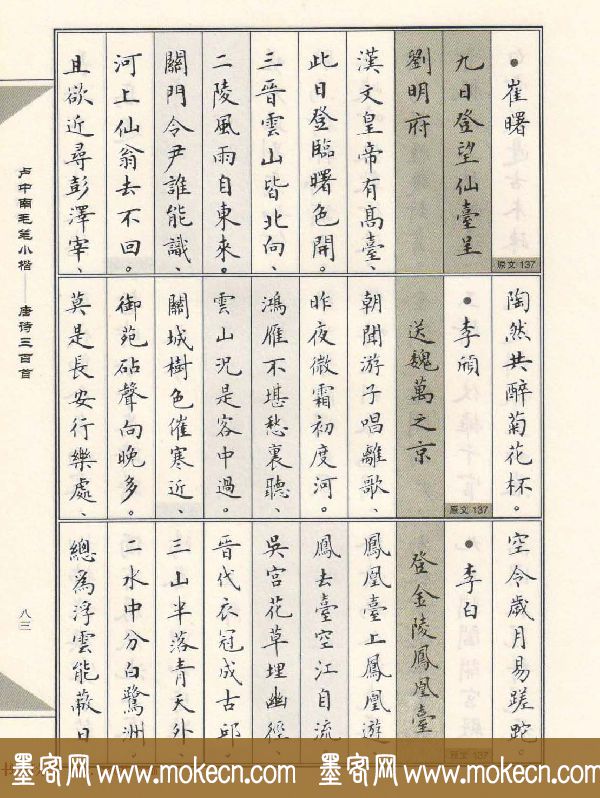 •崔曙
九日登望仙臺呈
原文137
劉明府
漢文皇帝有高臺、
此日登臨曙色開。
三晉雲山皆北向、
二陵風雨自東來。
關門令尹誰能識、
河上仙翁去不回。
且欲近尋彭澤宰、
陶然共醉菊花杯。
•李頎
原文137
送魏萬之京
朝聞游子唱離歌、
昨夜微霜初度河。
鴻雁不堪愁裏聽、
雲山況是客中過。
關城樹色催寒近、
御苑砧聲向晚多。
莫是長安行樂處、
空令歲月易蹉跎。
•李白
原文137
登金陵鳳凰臺
鳳凰臺上鳳凰遊、
鳳去臺空江自流。
吳宮花草埋幽徑、
晉代衣冠成古邱。
三山半落青天外、
二水中分白鷺洲。
總爲浮雲能蔽日
卢中南毛笔小楷——唐诗三百首
八三
墨客网 www.mokecn.com
墨客网 www.mokecn.com